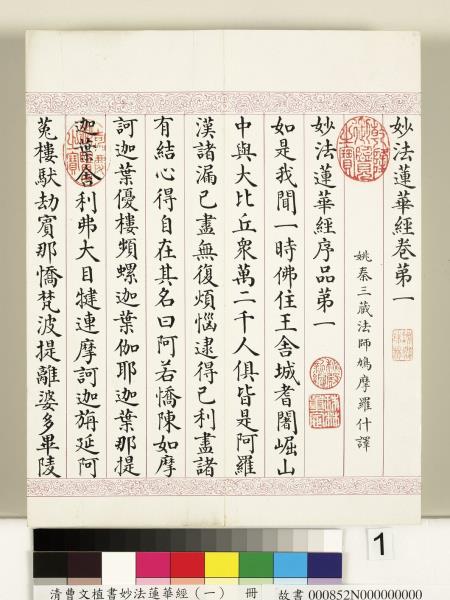 妙法蓮華經卷第一
姚秦三藏法師鳩摩羅什譯
妙法蓮華經序品第一
如是我聞一時佛住王舍城耆闍崛山
中與大比丘衆萬二千人俱皆是阿羅
漢諸漏已盡無復煩惱逮得已利盡諸
有結心得自在其名曰阿若憍陳如摩
訶迦葉優樓頻螺迦葉伽耶迦葉那提
迦葉舍利弗大目犍連摩訶迦旃延阿
㝹樓馱劫賓那憍梵波提離婆多畢陵
1
清曹文植書妙法蓮華經(一) 冊 故書 000852N000000000